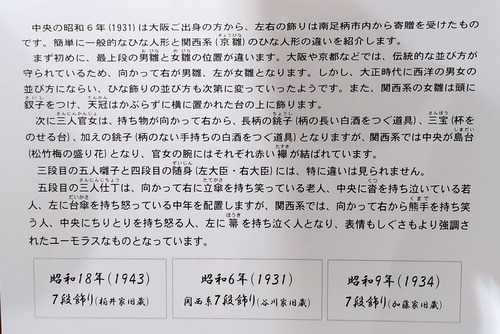 中央の昭和６年(1931)は大阪ご出身の方から、左右の飾りは南足柄市内から寄贈を受けたもの
です。簡単に一般的なひな人形と関西系(京雛)のひな人形の違いを紹介します。
まず初めに、最上段の男雛と女雛の位置が違います。大阪や京都などでは、伝統的な並び方が
守られているため、向かって右が男雛、左が女雛となります。しかし、大正時代に西洋の男女の
並び方にならい、ひな飾りの並び方も次第に変っていったようです。また、関西系の女雛は頭に
釵子をつけ、天冠はかぶらずに横に置かれた台の上に飾ります。
次に三人官女は、持ち物が向かって右から、長柄の銚子(柄の長い白酒をつぐ道具)、三宝(杯を
のせる台)、加えの銚子(柄のない手持ちの白酒をつぐ道具)となりますが、関西系では中央が島台
(松竹梅の盛り花)となり、官女の腕にはそれぞれ赤い襷が結ばれています。
三段目の五人囃子と四段目の随身(左大臣・右大臣)には、特に違いは見られません。
五段目の三人仕丁は、向かって右に立傘を持ち笑っている老人、中央に沓を持ち泣いている若
人、左に台傘を持ち怒っている中年を配置しますが、関西系では、向かって右から熊手を持ち笑
う人、中央にちりとりを持ち怒る人、左に箒を持ち泣く人となり、表情もしぐさもより強調さ
れたユーモラスなものとなっています。
昭和18年(1943)
7段飾り(柏井家旧蔵)
昭和6年(1931)
関西系7段飾り(谷川家旧蔵)
昭和9年(1934)
7段飾り(加藤家旧蔵)